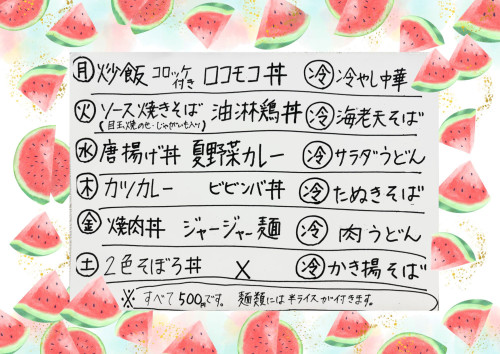 月 炒飯 コロッケ付き ロコモコ丼 冷 冷やし中華
火 ソース焼きそば 油淋鶏丼 冷 海老天そば
(目玉焼のせ・じゃがいも入り)
水 唐揚げ丼 夏野菜カレー 冷 サラダうどん
木 カツカレー ビビンバ丼 冷 たぬきそば
金 焼肉丼 ジャージャー麺 冷 肉うどん
土 2色そぼろ丼 × 冷 かき揚そば
※ すべて500円です。 麺類には半ライスが付きます。